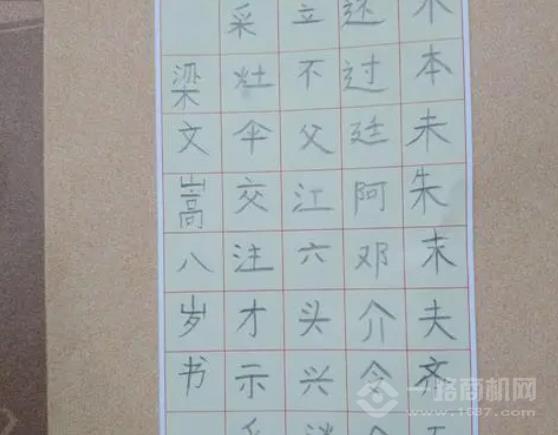 本未朱末夫齐
过廷阿邓介令
立不父江六头兴
采灶伞交注才示
梁文嵩八岁书
一路商机网